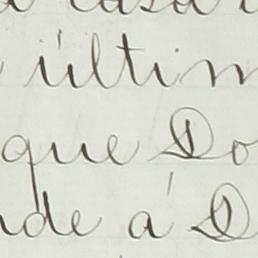 a casa
últim
que Do
nde á D